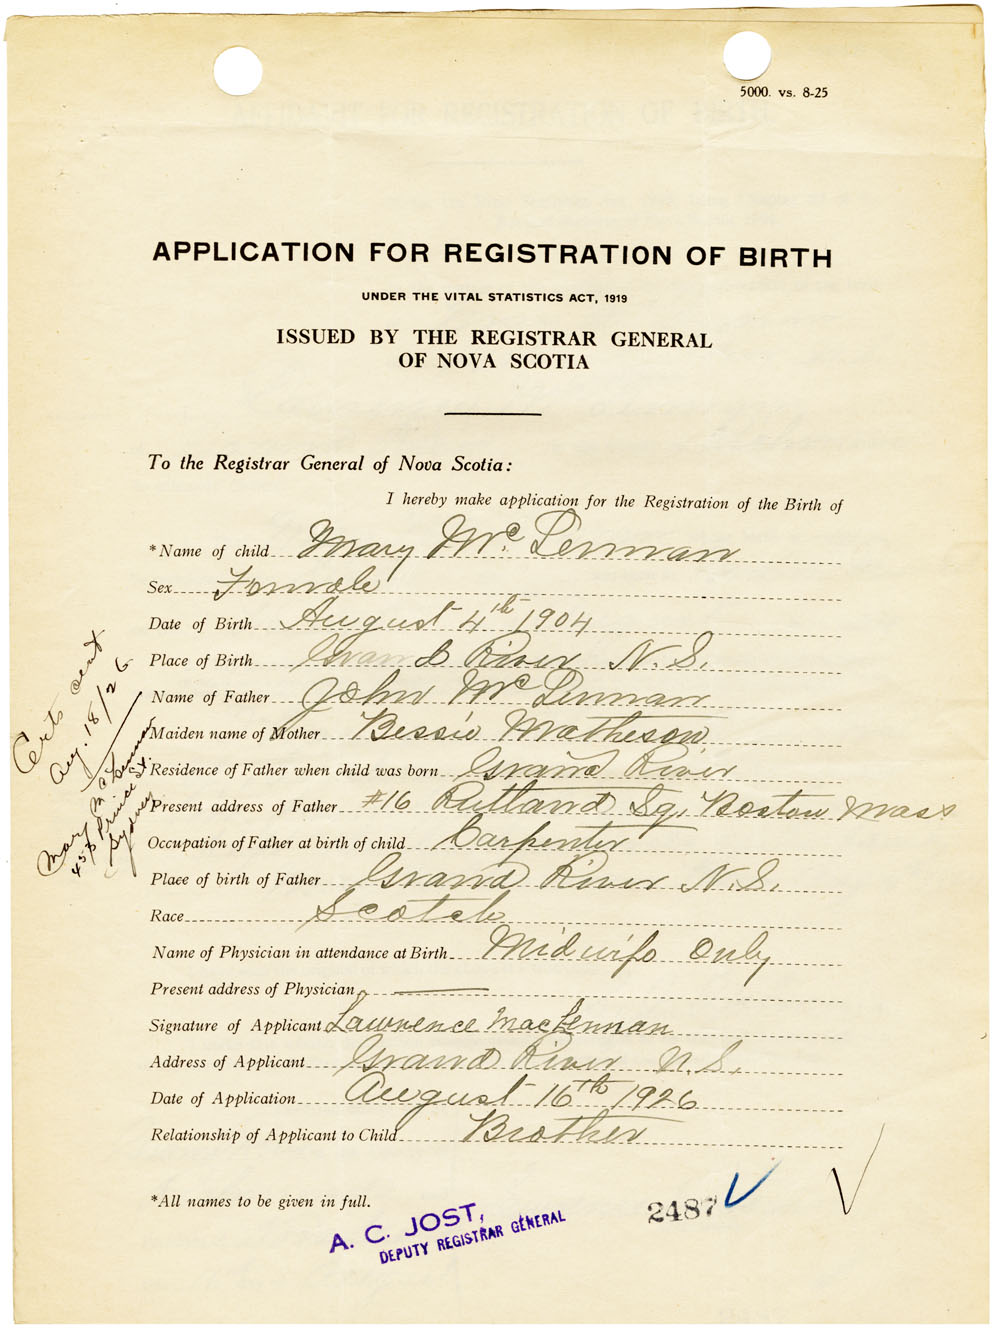 5000. vs. 8-25
APPLICATION FOR REGISTRATION OF BIRTH
UNDER THE VITAL STATISTICS ACT, 1919
ISSUED BY THE REGISTRAR GENERAL
OF NOVA SCOTIA
To the Registrar General of Nova Scotia:
I hereby make application for the Registration of the Birth of
*Name of child Mary Mc Lennan
Sex Female
Date of Birth August 4th 1904
Place of Birth Grand River N.S.
Name of Father John Mc Lennan
Maiden name of Mother Bessie Matheson
Residence of Father when child was born Grand River
Present address of Father #16 Rutland Sq, Boston Mass
Occupation of Father at birth of child Carpenter
Place of birth of Father Grand River N.S.
Race Scotch
Name of Physician in attendance at Birth Midwife Only
Present address of Physician
Signature of Applicant Lawrence MacLennan
Address of Applicant Grand River N.S.
Date of Application August 16th 1926
Relationship of Applicant to Child Brother
*All names to be given in full.
A. C. JOST,
DEPUTY REGISTRAR GENERAL
2487
Cert sent
Aug. 18/26
Mary McLennan
Prince St.
Sydney